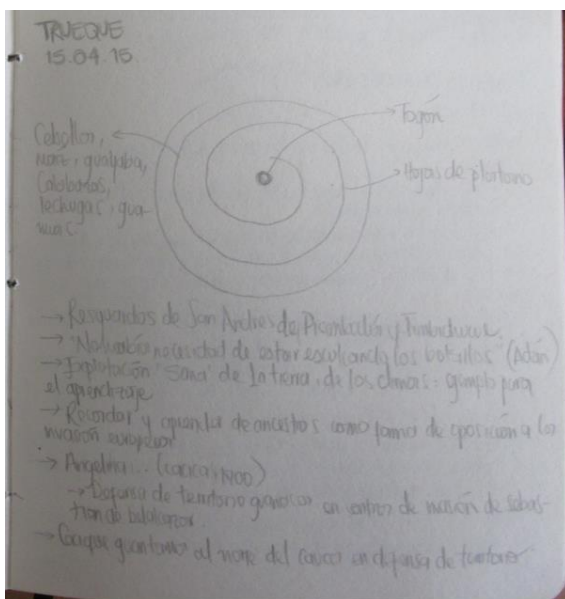 TRUEQUE
15.04.15
Fogón
Cebollas,
maíz, guayaba,
Calabazas,
lechugas, gua-
mas.
Hojas de plátano
→ Resguardos de San Andrés de Pisimbalá y Tumbichucue
→ "No había necesidad de estar esculcando los bolsillos" (Adán)
→ Explotación "sana" de la tierra, de los climas = ejemplo para
el aprendizaje
→ Recordar y aprender de ancestros como forma de oposición a la
invasión europea
→ Angelina... (cacica, 1400)
→ Defensa de territorio en contra de invasión de Sebas-
tián de Belalcázar
→ Cacique al norte del Cauca en defensa de territorio